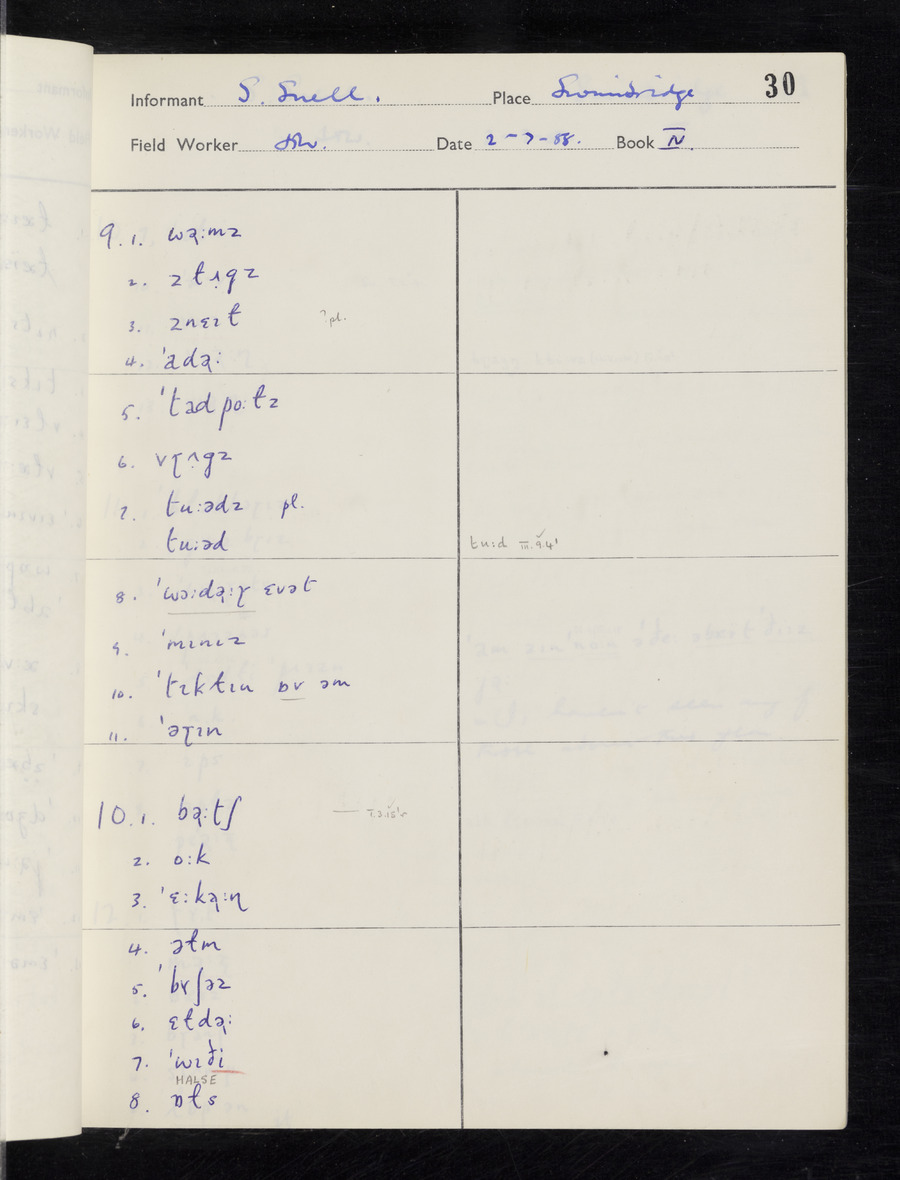 30
Informant S. Snell. Place Swimbridge
Field Worker Date 2-7-58. Book IV.
9. 1. wə̢:mz
2. zɫʌgz
3. znɛɪɫ ?pl.
4. 'adə̢:
5. 'tad po:ɫz
6. vɽʌgz
7. tu:ədz pl.
tu:əd tu:d III.9.4¹
8. 'wɔ:də̢:ɽ ɛvət
9. 'mɪnɪz
10. 'tɪkɫɪn ɒv əm
11. 'əɽɪn
10. 1. bə̢:tʃ
2. o:k
3. 'ɛ:kə̢:ɳ
4. əɫm
5. 'bʏʃəz
6. ɛɫdə̢:
7. 'wɪði
HALSE
8. ɒɫs